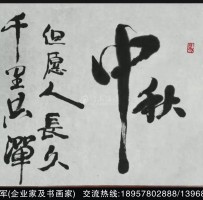 中秋
但愿人長久
千里共婵
军(企业家及书画家) 交流热线:18957802888/1396